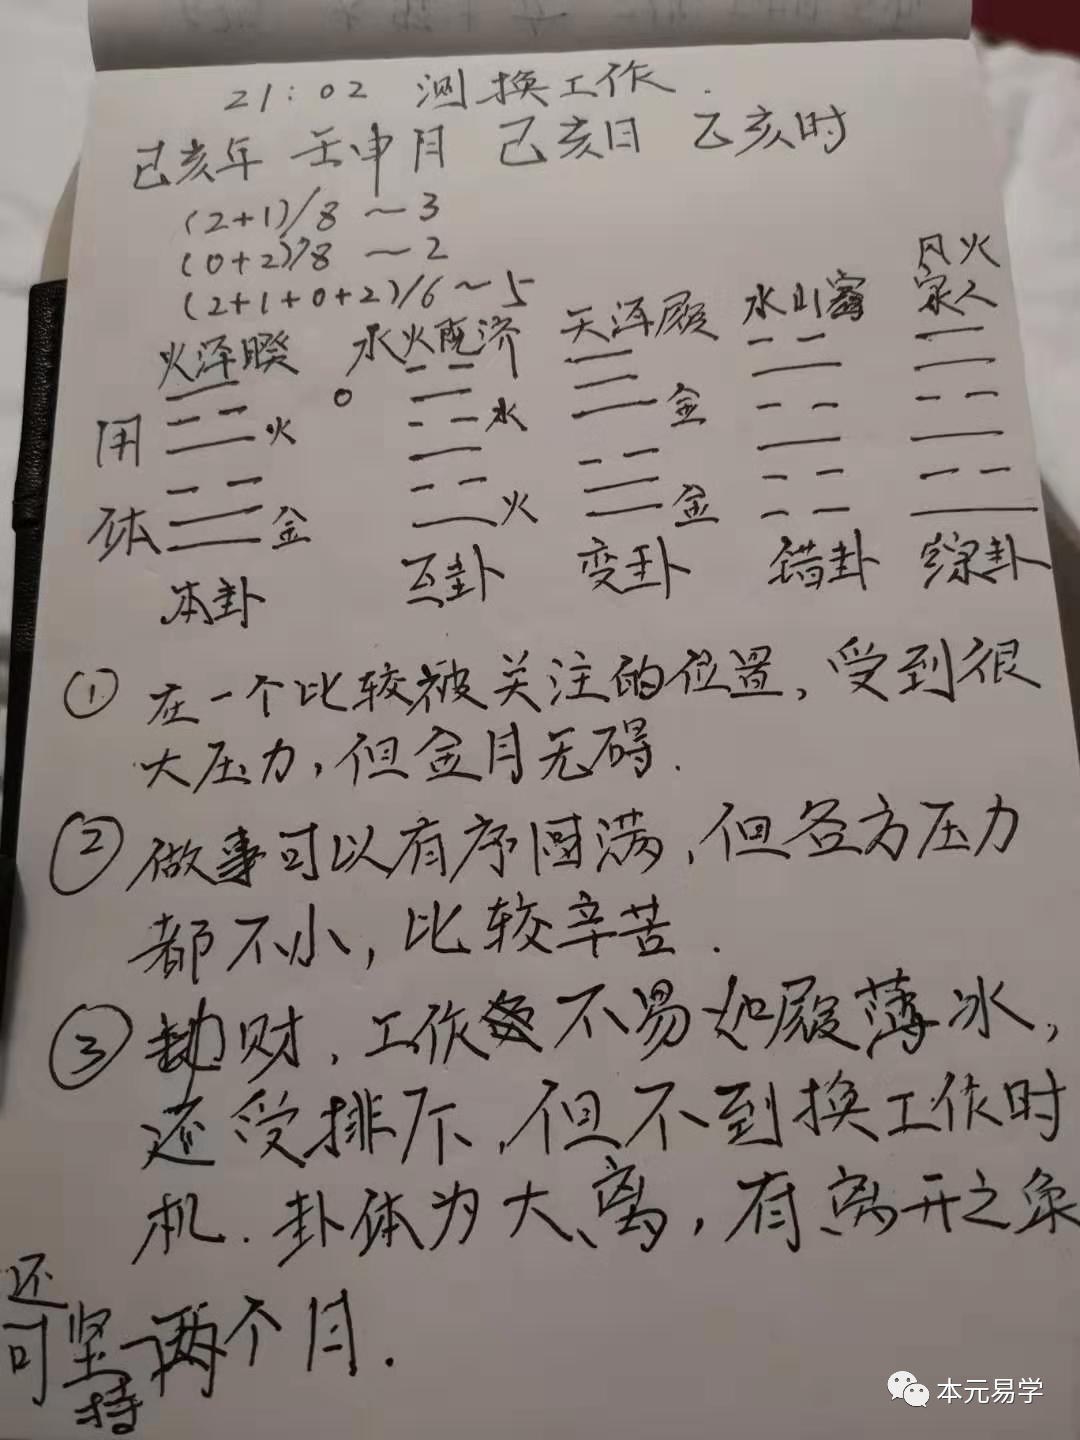 21:02 测换工作.
己亥年 壬申月 己亥日 乙亥时
(2+1)/8 ~ 3
(0+2)/8 ~ 2
(2+1+0+2)/6 ~ 5
火泽睽 水火既济 天泽履 水山蹇 风火家人
用 火 水 金
体 金 火 金
本卦 互卦 变卦 错卦 综卦
① 在一个比较被关注的位置,受到很
大压力,但金月无碍.
② 做事可以有序圆满,但各方压力
都不小,比较辛苦.
③ 劫财,工作不易如履薄冰,
还受排斥,但不到换工作时
机.卦体为大离,有离开之象
还可坚持一两个月.
本元易学